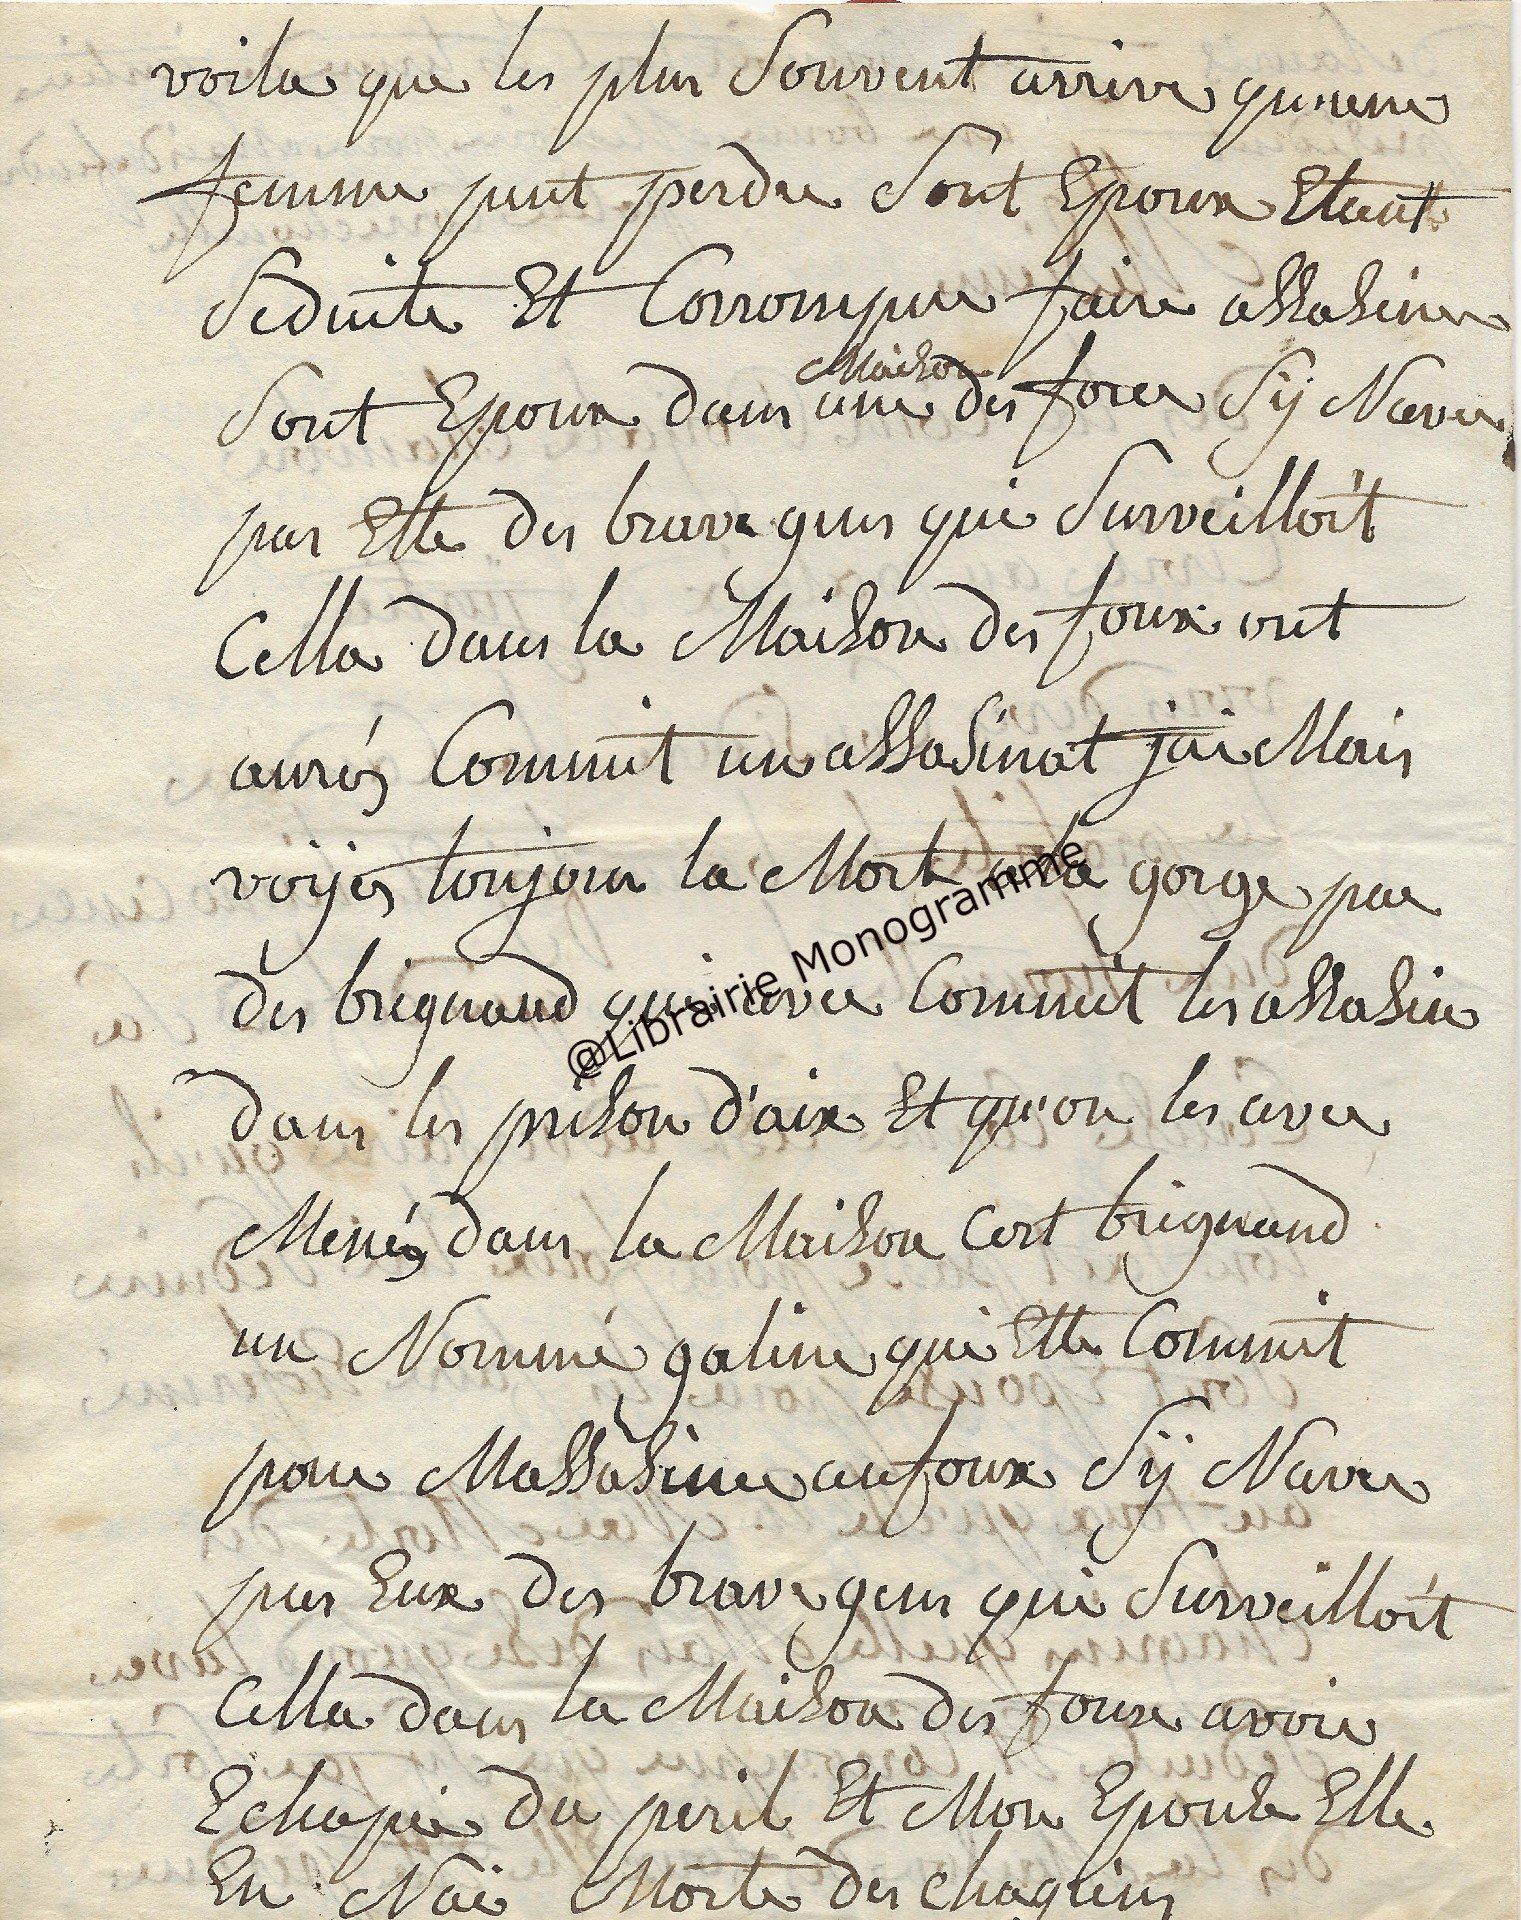 voila que les plus Souvent arrive qu'une
femme peut perdre Sont Epoux Etant
Seduite Et Corrompue faire assasiner
Maison
Sont Epoux dans une des foux Sÿ Navoi
pas Ette des brave gens qui Surveilloit
Cella dans la Maison des foux ont
aurés Commit un assasinat jai Mais
voÿés toujour la Mort a la gorge par
des brignand qui avoi Commit les assasin
dans les prison d'aix Et qu'on les avoi
Menés dans la Maison Cest brignand
un Nommé galine qui Ette Commit
pour Massasiner au foux Sÿ Navoi
pas Eux des brave gens qui Surveilloit
Cella dans la Maison des foux avoir
Echapée du peril Et Mon Epouse Elle
En Naé Morte des chagrins
@Librairie Monogramme